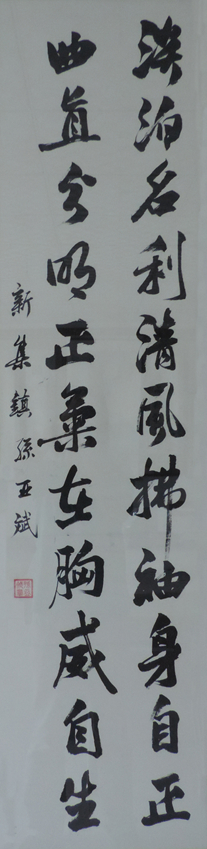 淡泊名利清风拂袖身自正
曲直分明正氣在胸威自生
新集鎮孫亚斌